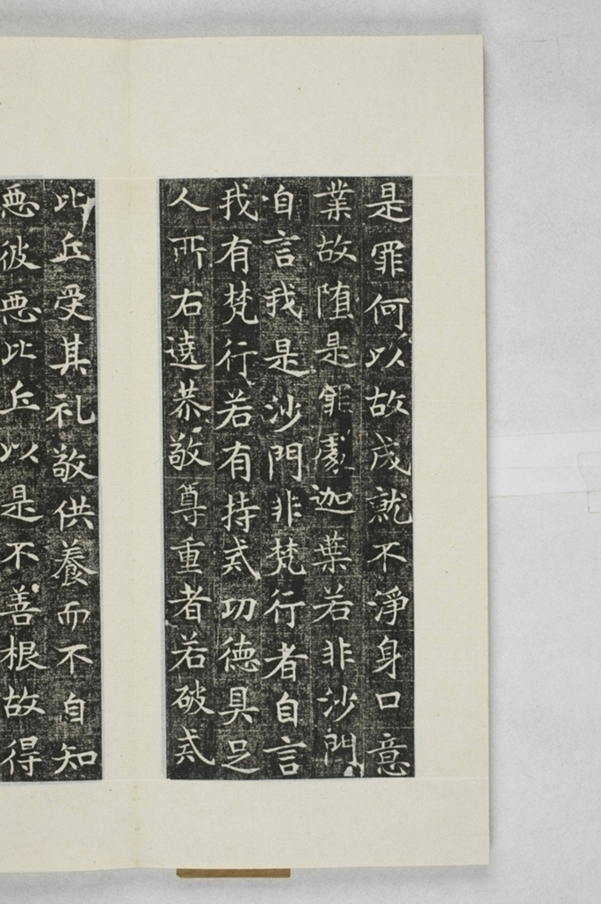 是罪何以故成就不淨身口意
業故堕是罪處迦葉若非沙門
自言我是沙門非梵行者自言
我有梵行若有持戒功德具足
人所右遶恭敬尊重者若破戒
比丘受其礼敬供養而不自知
惡彼惡比丘以是不善根故得